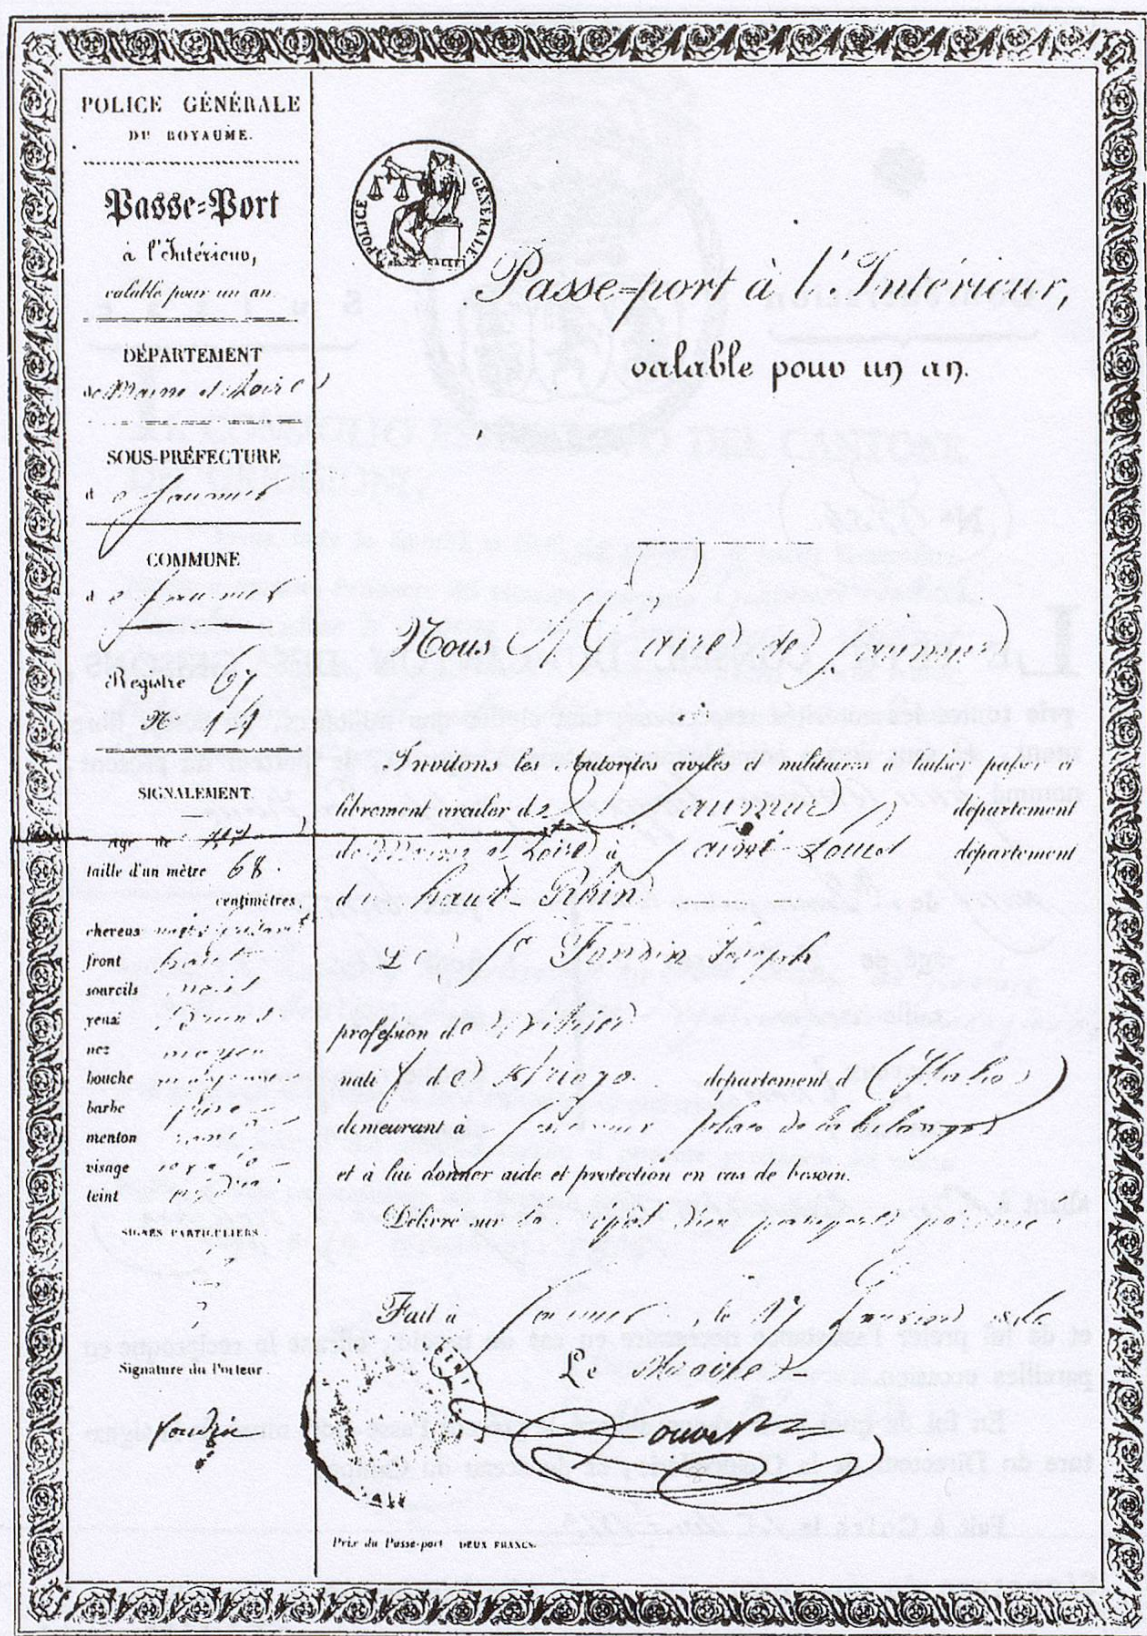 POLICE GÉNÉRALE
DU ROYAUME.
Passe=Port
à l'Intérieur,
valable pour un an.
DÉPARTEMENT
de Maine et Loire
SOUS-PRÉFECTURE
d e Saumur
COMMUNE
d e Saumur
Registre 67
N° 14
SIGNALEMENT.
age de
taille d'un mètre 68.
centimètres
cheveux
front haut
sourcils noirs
yeux bruns
nez moyen
bouche moyenne
barbe
menton rond
visage
teint
SIGNES PARTICULIERS.
Signature du Porteur.
POLICE GÉNÉRALE
Passe=port à l'Intérieur,
valable pour un an.
Nous Maire de Saumur
Invitons les Autorités civiles et militaires à laisser passer et
librement circuler de Saumur département
de Maine et Loire à Saint-Louis département
du haut-Rhin
L e Sr Joseph
profession de
natif de département d
demeurant à Saumur place de la
et à lui donner aide et protection en cas de besoin.
Délivré sur le dépôt d'un passeport périmé.
Fait à Saumur, le 17
Le Maire
Louvet
Prix du Passe-port DEUX FRANCS.